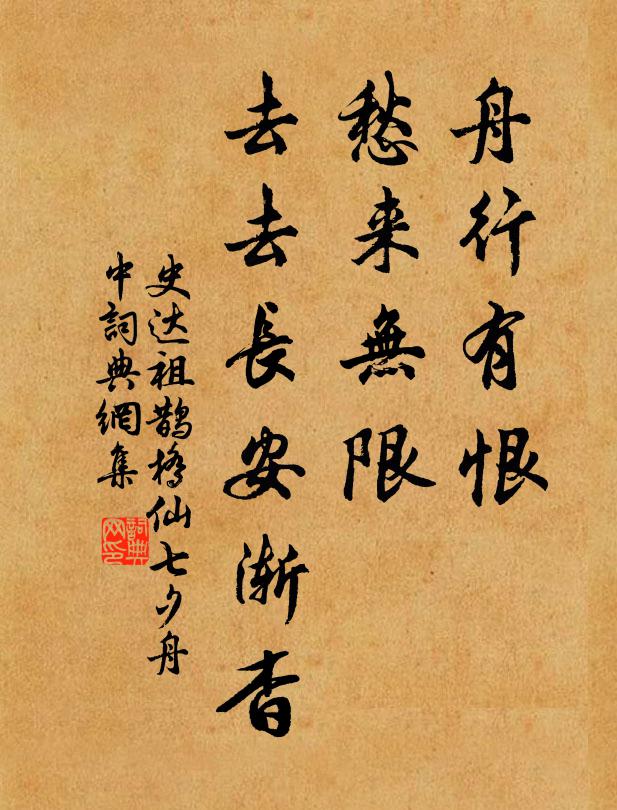 舟行有恨
愁来無限
去去長安渐杳
史达祖鹊橋仙七夕舟
中詞典網集
詞典
网印